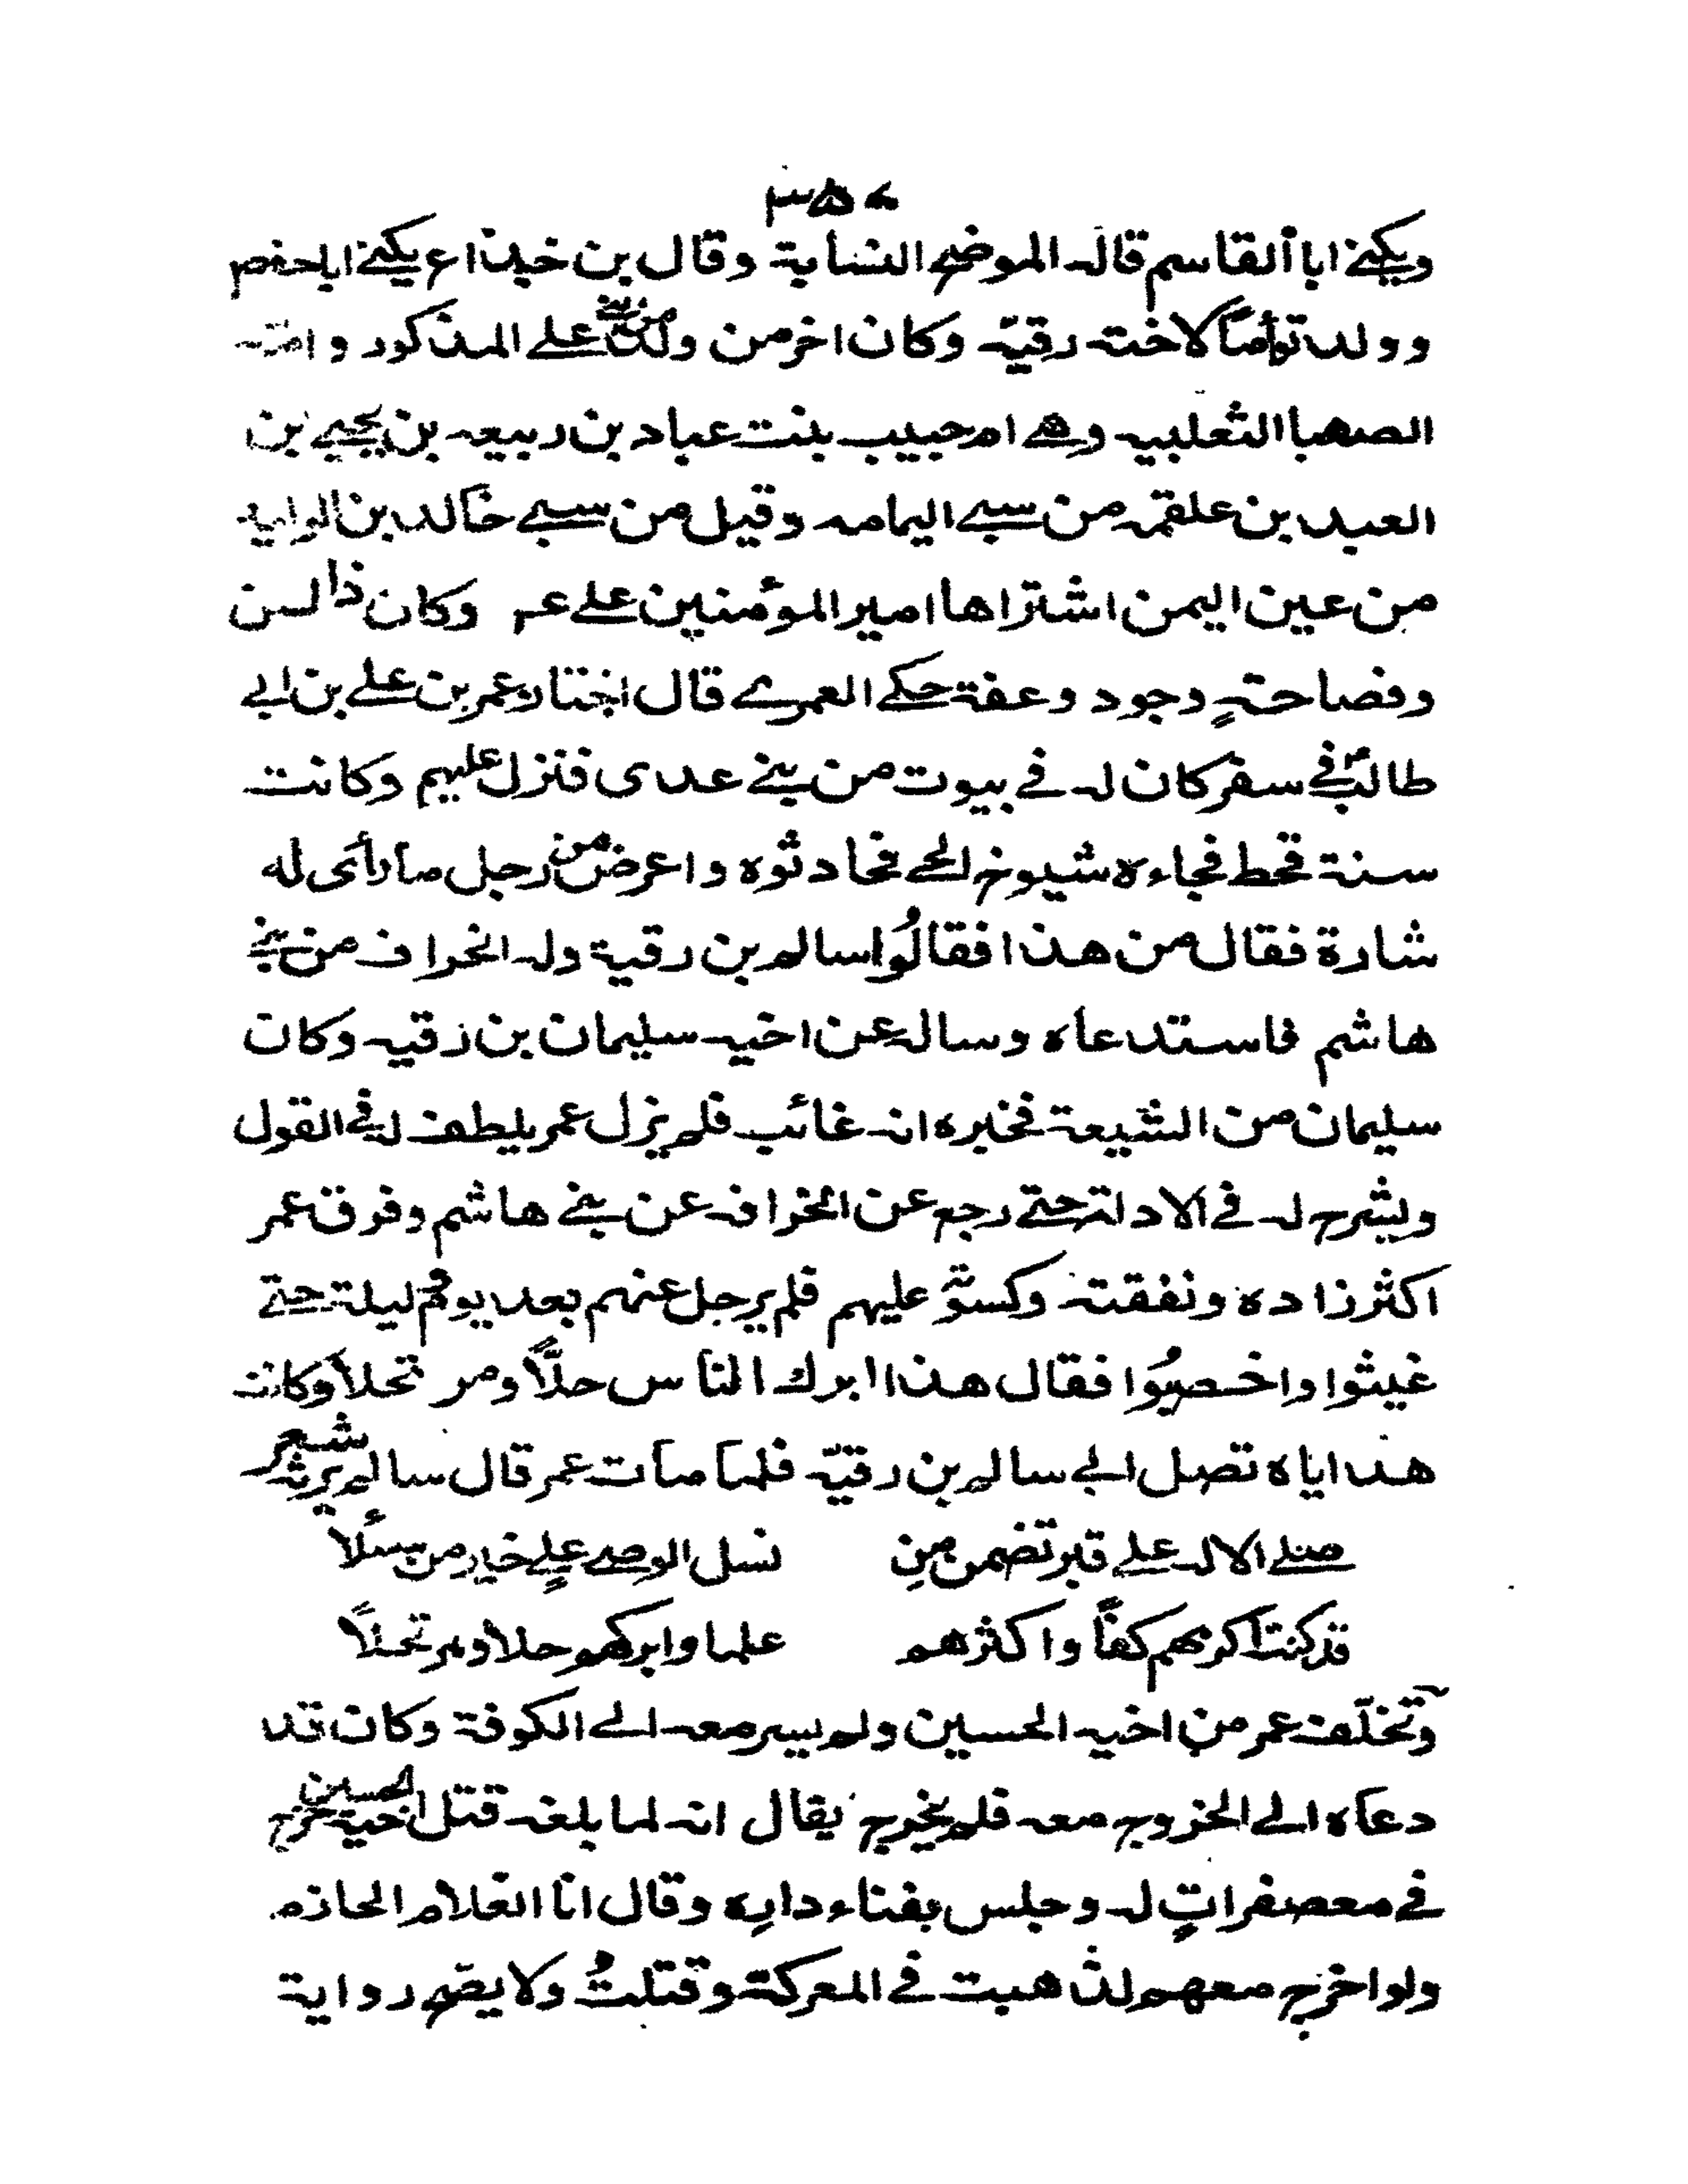 ويكنى ابا القاسم قاله الموضح النسابة وقال بن خداع يكنى اباحفص
وولد توأما لاخته رقيّه وكان اخر من ولد من بنى على المذكور وامّه
الصهبا الثعلبيه وهى ام حبيب بنت عباد بن ربيعه بن يحيى بن
العبد بن علقمه من سبى اليمامه وقيل من سبى خالد بن الوليد
من عين اليمن اشتراها امير المؤمنين على عم وكان ذا لسن
وفصاحةٍ وجود وعفة حكى العمرى قال اجتاز عمر بن على بن ابى
طالب فى سفر كان له فى بيوت من بنى عدى فنزل عليهم وكانت
سنة قحط فجاءه شيوخ الحى فحادثوه واعرض من رجل ما رأى له
شارة فقال من هذا فقالُوا سالم بن رقية وله انحراف من بنى
هاشم فاستدعاه وساله عن اخيه سليمان بن رقيه وكان
سليمان من الشيعة فخبره انه غائب فلم يزل عمر يلطف له فى القول
ويشرح له فى الادلة حتى رجع عن انحرافه عن بنى هاشم وفرق عمر
اكثر زاده ونفقته وكسوته عليهم فلم يرحل عنهم بعد يوم وليلة حتى
غيثوا واخصبُوا فقال هذا ابرك الناس حلاً ومرتحلاً وكانت
هداياه تصل الى سالم بن رقيّه فلما مات عمر قال سالم يرثيه شعر
صلى الاله على قبر تضمن مِن نسل الوصى علىٍ خير من سئلا
قد كنت اكرمهم كفاً واكثرهم علما وابركهم حلا ومرتحلاً
وتخلّف عمر من اخيه الحسين ولم يسر معه الى الكوفة وكان قد
دعاه الى الخروج معه فلم يخرج يقال انه لما بلغه قتل اخيه الحسين خرج
فى معصفراتٍ له وجلس بفناء داره وقال انا الغلام الحازم
ولو اخرج معهم لذهبت فى المعركة وقتلتُ ولا يصح رواية